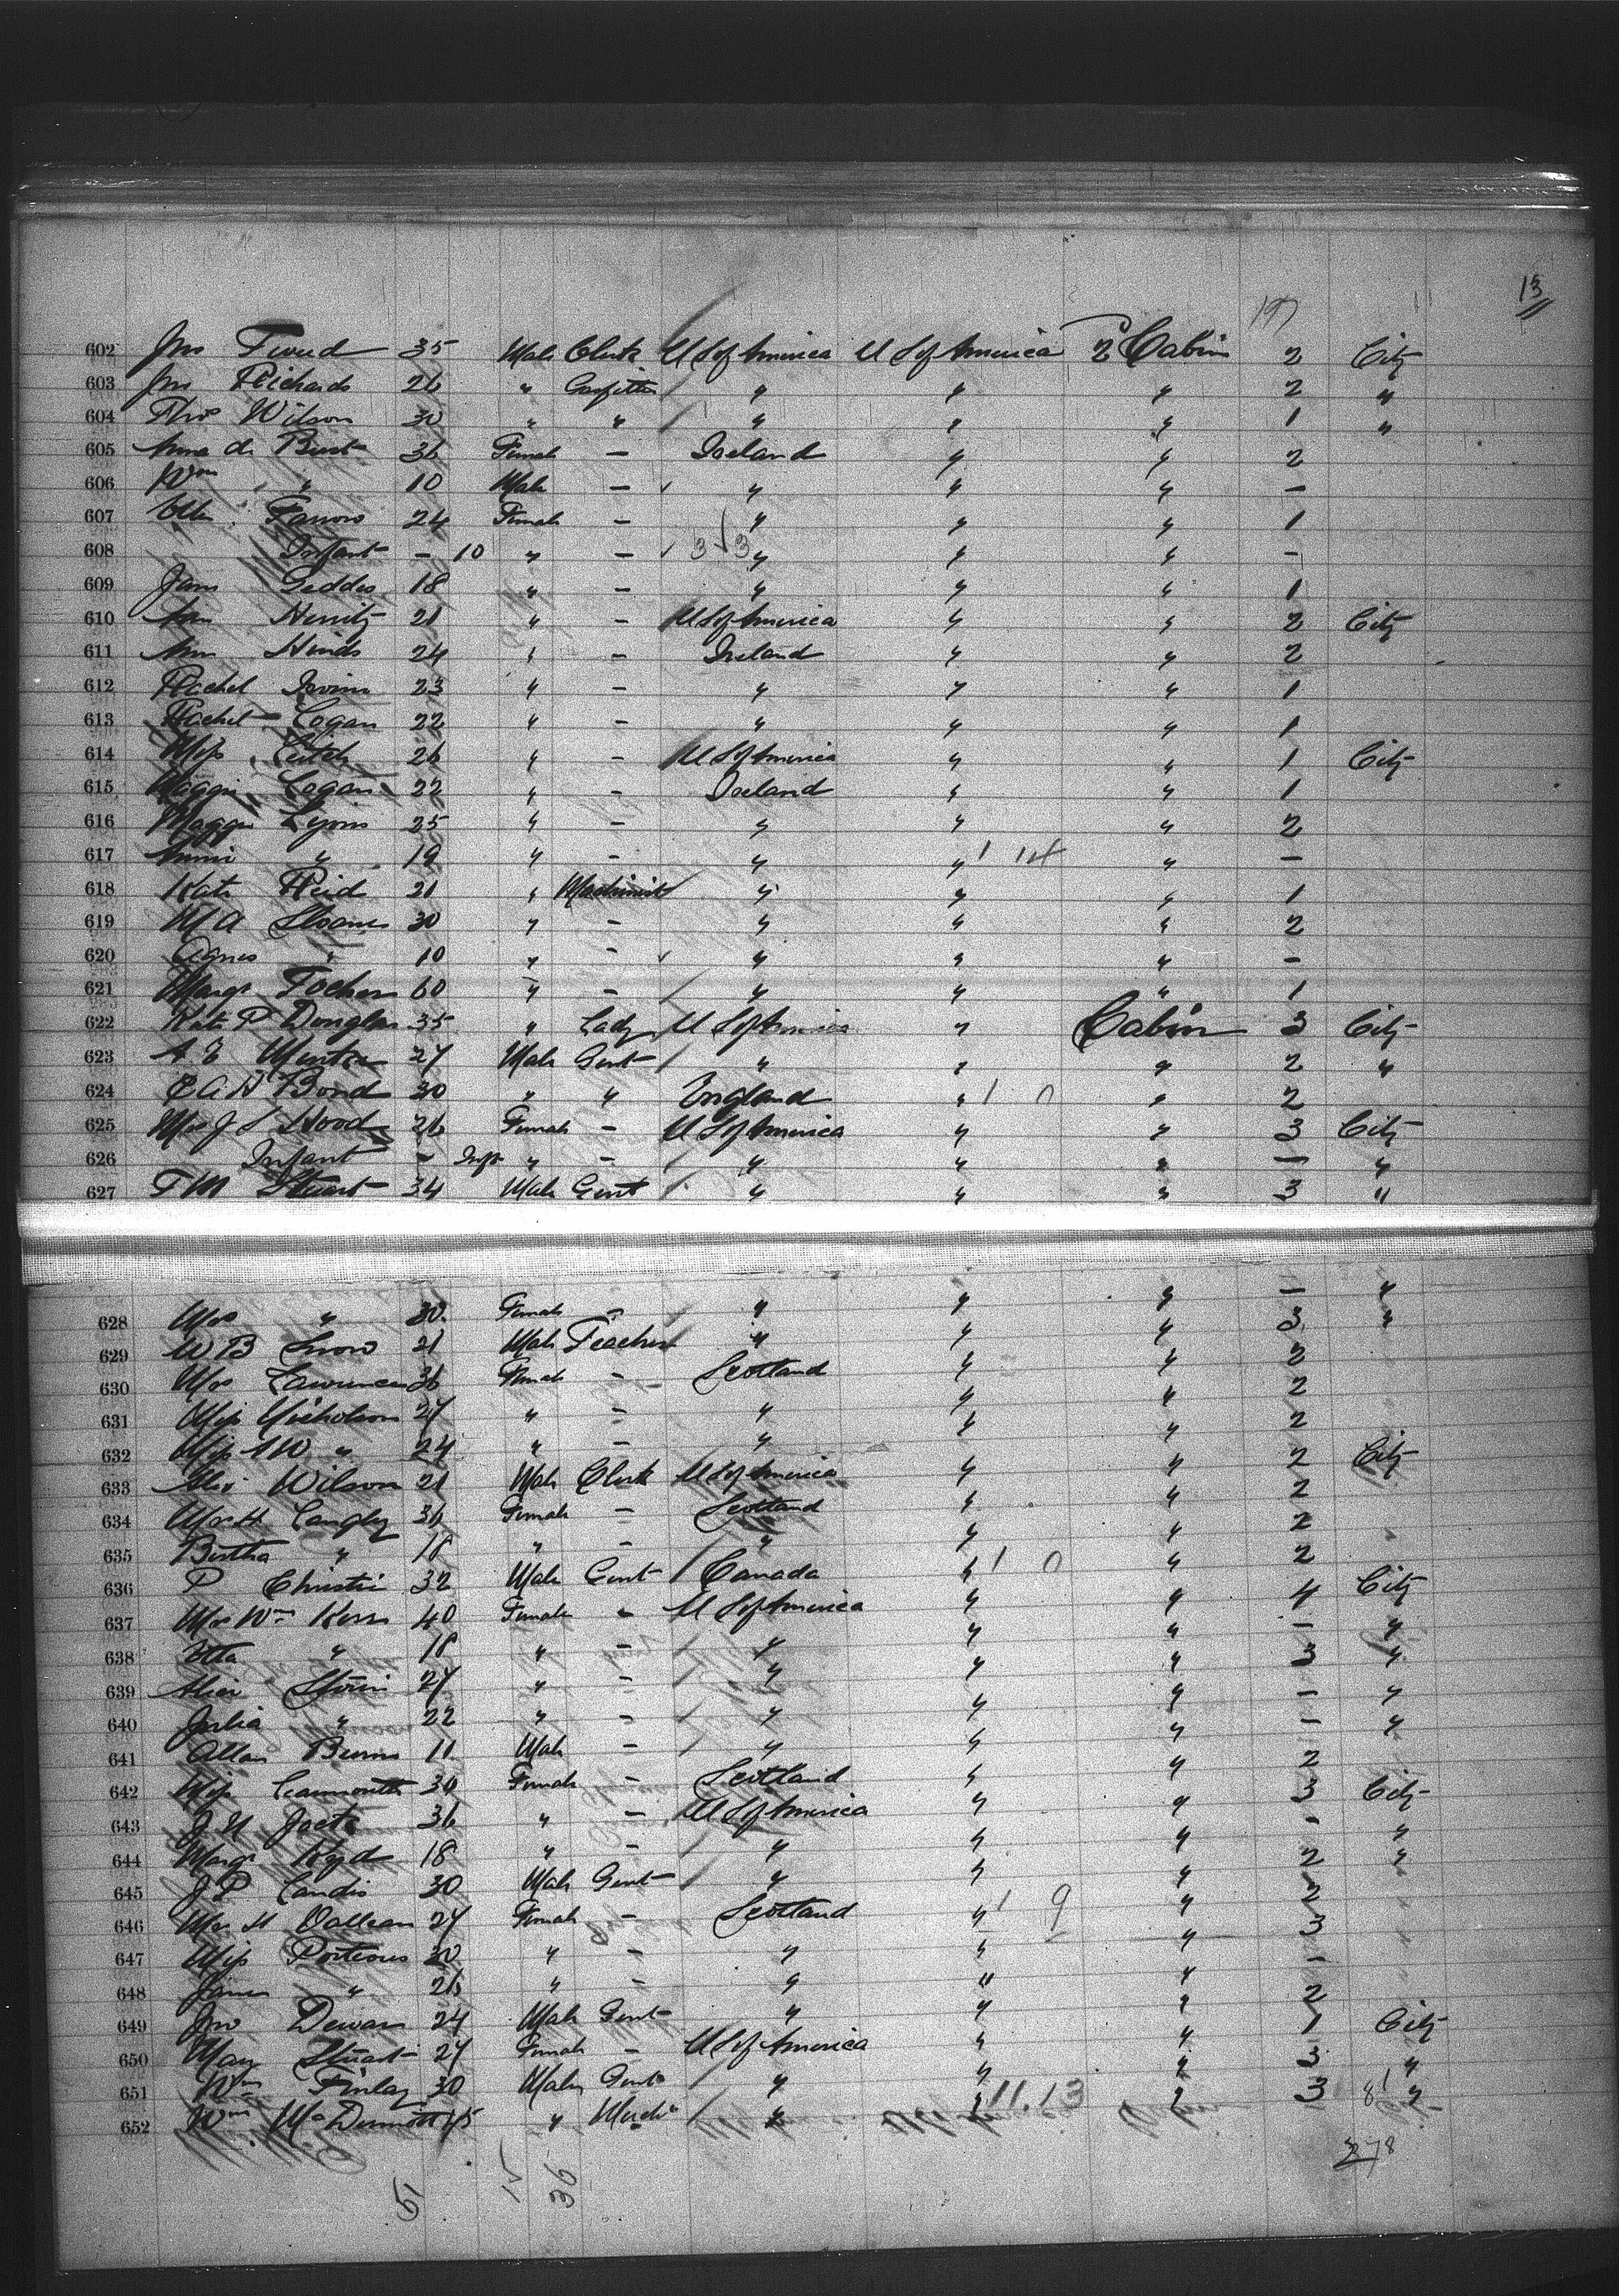 13
197
602 Jno Tweed 35 Male Clerk U S of America U S of America 2 Cabin 2 City
603 Jno Richards 26 " Gasfitter " " " 2 "
604 Thos Wilson 30 " " " " " 1 "
605 Anna d. Bust 36 Female - Ireland " " 2
606 Wm " 10 Male - " " " -
607 Farrow 24 Female - " " " 1
608 Infant - 10 " - 3 3 " " " -
609 Jane Geddes 18 " - " " " 1
610 21 " - U S of America " " 2 City
611 Hinds 24 " - Ireland " " 2
612 Rachel Irvine 23 " - " " " 1
613 Rachel Logan 22 " - " " " 1
614 Miss Leitch 26 " - U S of America " " 1 City
615 Maggie Logan 22 " - Ireland " " 1
616 Maggie Lyons 25 " - " " " 2
617 Annie " 19 " - " " 1 14 " -
618 Kate Reid 21 " Machinist " " " 1
619 M A Sloane 30 " - " " " 2
620 Agnes " 10 " - " " " -
621 Margt Tocher 60 " - " " " 1
622 Kate P Douglas 35 " Lady U S of America " Cabin 3 City
623 A E 27 Male Gent " " " 2 "
624 E A W Bond 30 " " England " 1 0 " 2
625 Mrs J S Hood 26 Female - U S of America " " 3 City
626 Infant - Inft " - " " " - "
627 T M Stuart 34 Male Gent " " " 3 "
628 Mrs " 30 Female - " " " - "
629 W B Snow 21 Male Teacher " " " 3 "
630 Mrs Lawrence 36 Female - Scotland " " 2
631 Miss Nicholson 27 " - " " " 2
632 Miss A W " 24 " - " " " 2
633 Alex Wilson 21 Male Clerk U S of America " " 2 City
634 Mrs H Langley 36 Female - Scotland " " 2
635 Bertha " 18 " - " " " 2
636 P Christie 32 Male Gent Canada " 1 0 " 2
637 Mrs Wm Kerr 40 Female - U S of America " " 4 City
638 Etta " 18 " - " " " - "
639 Alice Storin 27 " - " " " 3 "
640 Julia " 22 " - " " " - "
641 Allan Burns 11 Male - " " " - "
642 Miss 30 Female - Scotland " " 2
643 36 " - U S of America " " 3 City
644 Margt Kyd 18 " - " " " - "
645 J P Landis 30 Male Gent " " " 2 "
646 Mrs H 27 Female - Scotland " 1 9 " 2
647 Miss Porteous 30 " - " " " 3
648 " 26 " - " " " -
649 Jno Dewar 24 Male Gent " " " 2
650 May Stuart 27 Female - U S of America " " 1 City
651 Wm Finlay 30 Male Gent " " " 3 "
652 Wm McDermott 45 " " 11.13 " 3 81 "
278
51 15 36